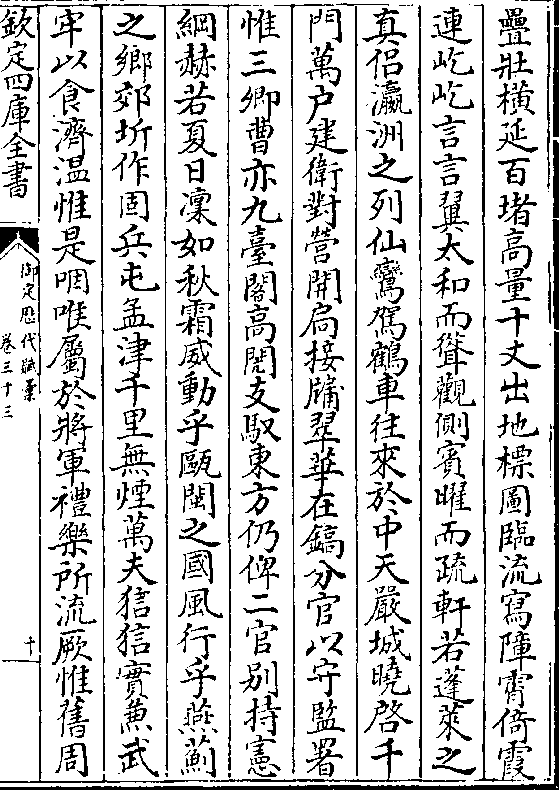 疊壯橫延百堵高量十丈出地標圖臨流寫障霄倚霞
連屹屹言言翼太和而聳觀側賓曜而疏軒若蓬萊之
真侣瀛洲之列仙鸞駕鶴車往來於中天嚴城曉啓千
門萬户建衛對營開扃接牗翠華在鎬分官以守監署
惟三卿曹亦九臺閣高閌支馭東方仍俾二官别持憲
綱赫若夏日凜如秋霜威動乎甌閩之國風行乎燕薊
之鄉郊圻作固兵屯孟津千里無煙萬夫狺狺實惫武
牢以食濟溫惟是啁唯屬於將軍禮樂所流厥惟舊周
欽定四庫全書
御定歴代賦彚
卷三十三
十